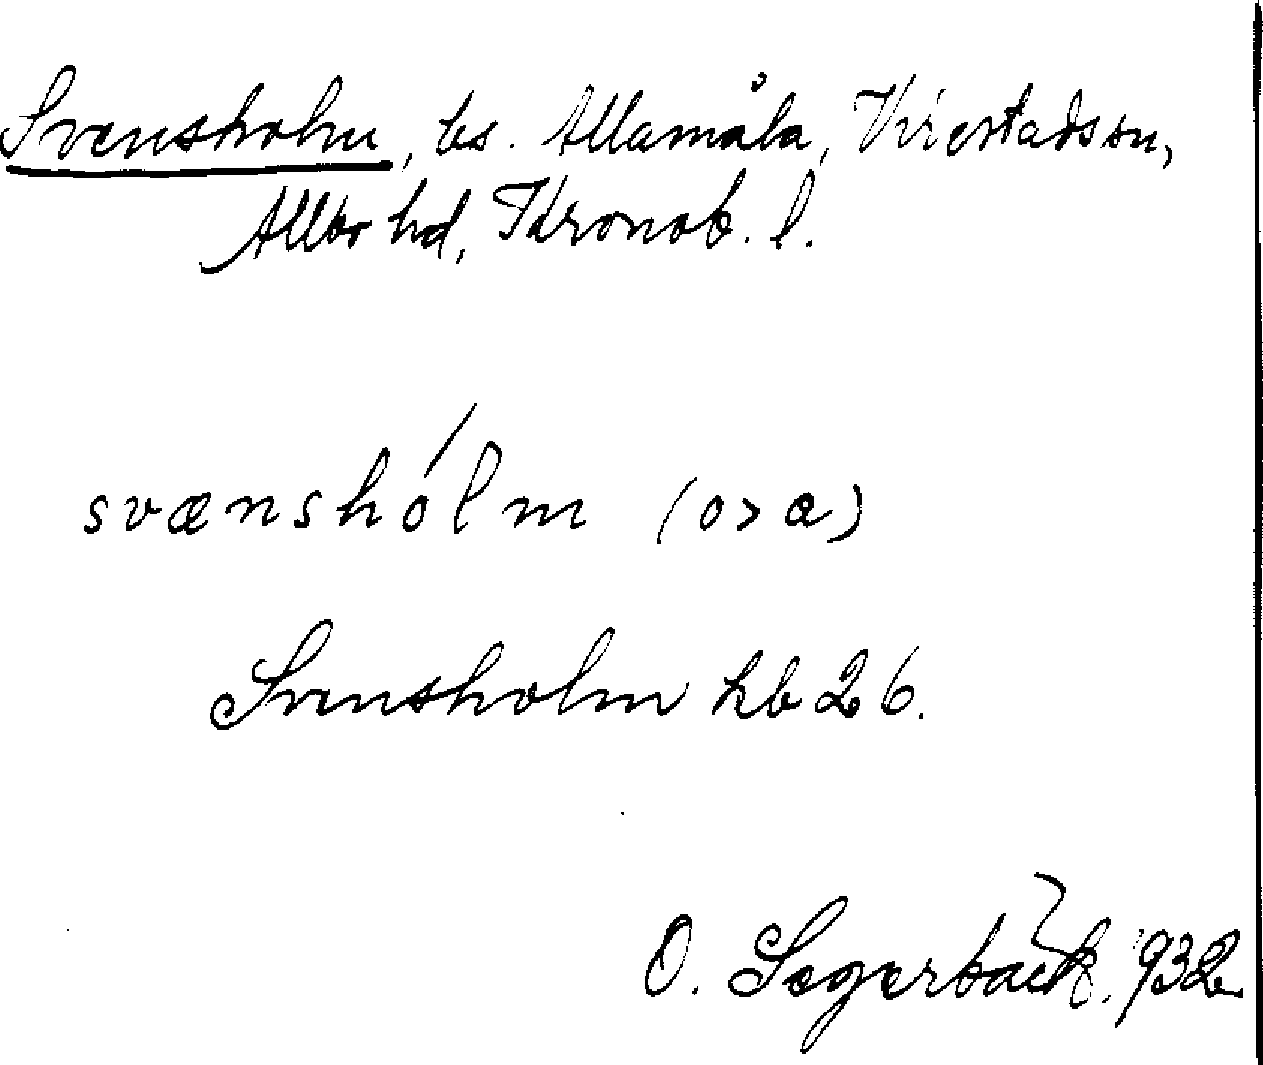 Svensholm, bs. Allamåla, Virestads sn,
Allbo hd, Kronob. l.
svænshólm (o>a)
Svensholm hb 26.
O. Segerbäck, 932